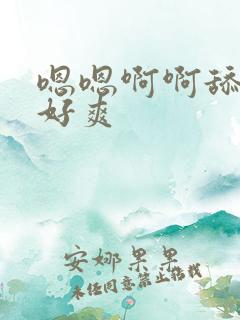 嗯嗯啊啊舔
好爽
安娜果果
未经同意禁止转载